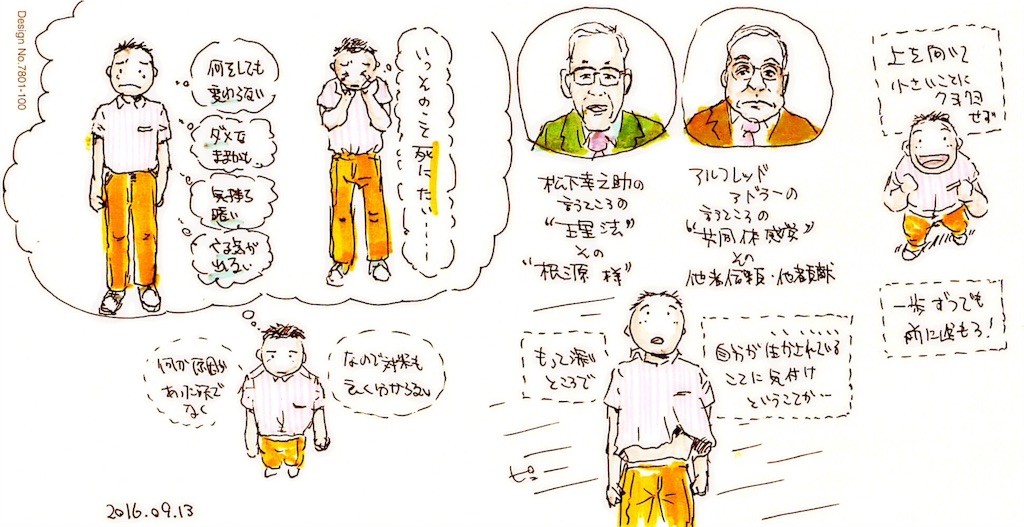 Design No.7801-100
何をしても
変わらない
ダメな
ままかも
気持ち
暗い
やる気が
出ない
いっそのこと死にたい……
何か原因が
あった訳で
なく
なので対策も
よく分からない
2016.09.13
松下幸之助の
言うところの
“王里法”
その
“根源様”
アルフレッド
アドラーの
言うところの
“共同体感覚”
その
他者信頼・他者貢献
もっと深い
ところで
自分が生かされている
ことに気付け
ということか…
ピュ
上を向いて
小さいことに
クヨクヨ
せず
一歩ずつでも
前に進もう!